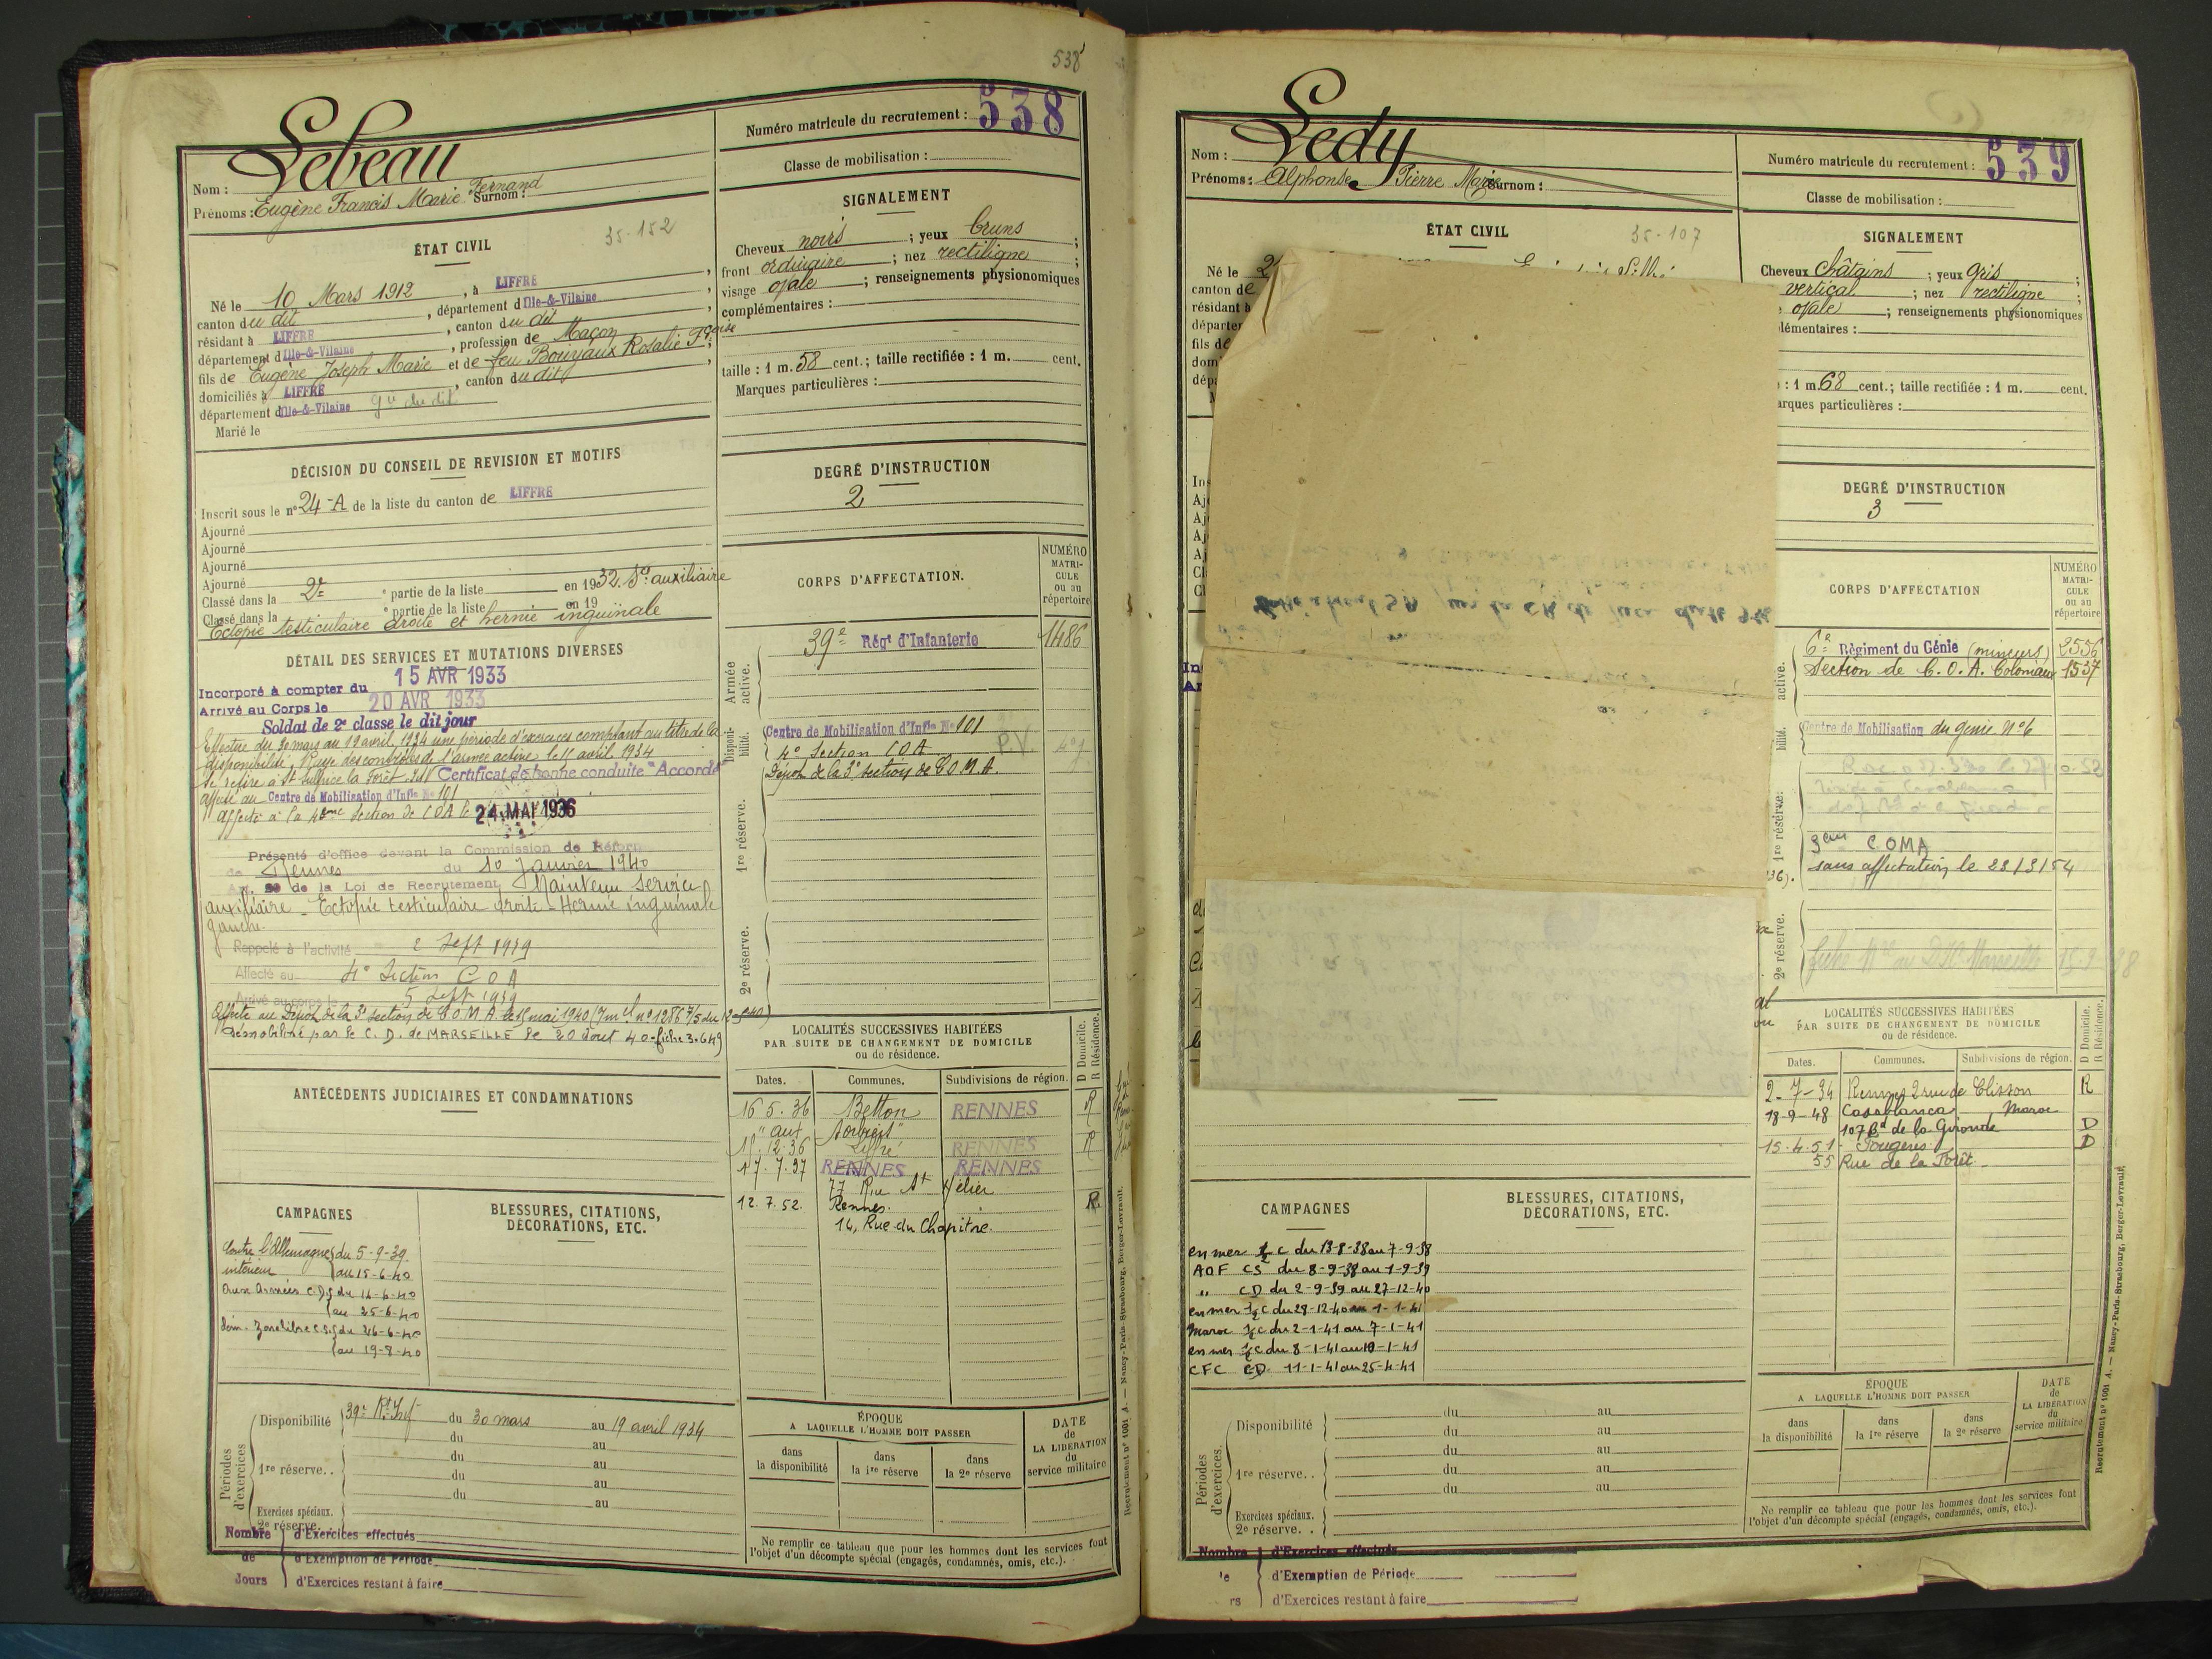 538
Lebeau
Nom :
Prénoms : Eugène Francis Marie Fernand Surnom :
Numéro matricule du recrutement : 538
Classe de mobilisation :
ÉTAT CIVIL
35-152
Né le 10 Mars 1912, à LIFFRE,
canton du dit, département d'Ille-&-Vilaine,
résidant à LIFFRE, canton du dit,
département d'Ille-&-Vilaine, profession de Maçon
fils de Eugène Joseph Marie et de feu Bouvaux Rosalie Fçoise
domiciliés à LIFFRE, canton du dit,
département d'Ille-&-Vilaine
Marié le
SIGNALEMENT
Cheveux noirs ; yeux bruns ;
front ordinaire ; nez rectiligne ;
visage ovale ; renseignements physionomiques
complémentaires :
taille : 1 m. 58 cent.; taille rectifiée : 1 m. cent.
Marques particulières :
DÉCISION DU CONSEIL DE REVISION ET MOTIFS
Inscrit sous le n° 24-A de la liste du canton de LIFFRE
Ajourné
Ajourné
Ajourné
Ajourné
Classé dans la 2e partie de la liste en 1932. So auxiliaire
Classé dans la e partie de la liste en 19
Ectopie testiculaire droite et hernie inguinale
DEGRÉ D'INSTRUCTION
2
DÉTAIL DES SERVICES ET MUTATIONS DIVERSES
Incorporé à compter du 15 AVR 1933
Arrivé au Corps le 20 AVR 1933
Soldat de 2e classe le dit jour
Effectue du 30 mars au 19 avril 1934 une période d'exercices comptant au titre de la
disponibilité. Rayé des contrôles de l'armée active le 15 avril 1934
Se retire à St Sulpice la Forêt Certificat de bonne conduite "Accordé"
Affecté au Centre de Mobilisation d'Infie No 101
Affecté à la 4ème Section de COA le 24 MAI 1936
Présenté d'office devant la Commission de Réforme
de Rennes du 10 Janvier 1940
Art. 20 de la Loi de Recrutement Maintenu service
auxiliaire - Ectopie testiculaire droite - Hernie inguinale
gauche.
Rappelé à l'activité 2 Sept 1939
Affecté au 4e Section COA
Arrivé au corps le 5 Sept 1939
Affecté au Dépôt de la 3e section de COMA le 15 mai 1940
démobilisé par le C. D. de MARSEILLE le 20 aout 40 - fiche 3.649
CORPS D'AFFECTATION.
NUMÉRO MATRICULE ou au répertoire
Armée active.
39e Régt d'Infanterie 1486
Disponibilité.
Centre de Mobilisation d'Infie No 101
4e Section COA
Dépôt de la 3e section de COMA.
1re réserve.
2e réserve.
ANTÉCÉDENTS JUDICIAIRES ET CONDAMNATIONS
LOCALITÉS SUCCESSIVES HABITÉES
PAR SUITE DE CHANGEMENT DE DOMICILE
ou de résidence.
D Domicile.
R Résidence.
Dates. Communes. Subdivisions de région.
16 5. 36 Betton RENNES R
12 36 Liffré RENNES R
17. 7. 37 RENNES RENNES
77 Rue St Hélier
12. 7. 52. Rennes. R
14, Rue du Chapitre.
CAMPAGNES
BLESSURES, CITATIONS,
DÉCORATIONS, ETC.
Contre l'Allemagne du 5-9-39
intérieur au 15-6-40
Aux Armées C.D. du 16-6-40
au 25-6-40
Zone libre C.S. du 26-6-40
au 19-8-40
Périodes d'exercices
Disponibilité 39e Rt Inf du 30 mars au 19 avril 1934
du au
1re réserve.. du au
du au
Exercices spéciaux. du au
2e réserve.
Nombre de Jours
d'Exercices effectués
d'Exemption de Période
d'Exercices restant à faire
ÉPOQUE
A LAQUELLE L'HOMME DOIT PASSER
dans la disponibilité
dans la 1re réserve
dans la 2e réserve
DATE de LA LIBÉRATION du service militaire
Ne remplir ce tableau que pour les hommes dont les services font
l'objet d'un décompte spécial (engagés, condamnés, omis, etc.).
Recrutement n° 1001 A. — Nancy-Paris-Strasbourg, Berger-Levrault.
Ledy
Nom :
Prénoms : Alphonse Pierre Marie Surnom :
Numéro matricule du recrutement : 539
Classe de mobilisation :
ÉTAT CIVIL
35-107
Né le
canton de
résidant à
fils de
SIGNALEMENT
Cheveux châtains ; yeux gris ;
vertical ; nez rectiligne ;
ovale ; renseignements physionomiques
lémentaires :
: 1 m. 68 cent.; taille rectifiée : 1 m. cent.
arques particulières :
DEGRÉ D'INSTRUCTION
3
CORPS D'AFFECTATION
NUMÉRO MATRICULE ou au répertoire
active.
6e Régiment du Génie (mineurs) 2556
Section de C. O. A. Coloniaux 1537
bilité.
Centre de Mobilisation du génie No 6
1re réserve.
3ème COMA
sans affectation le 23/3/54
2e réserve.
LOCALITÉS SUCCESSIVES HABITÉES
PAR SUITE DE CHANGEMENT DE DOMICILE
ou de résidence.
D Domicile.
R Résidence.
Dates. Communes. Subdivisions de région.
2-7-34 Rennes 2 rue de Clisson R
18-9-48 Casablanca Maroc
107 Bd de la Gironde D
15-4-51 Fougères D
55 Rue de la Forêt
CAMPAGNES
BLESSURES, CITATIONS,
DÉCORATIONS, ETC.
en mer ½ c du 13-8-38 au 7-9-38
AOF CS du 8-9-38 au 1-9-39
" CD du 2-9-39 au 27-12-40
en mer ½ c du 28-12-40 au 1-1-41
Maroc ½ c du 2-1-41 au 7-1-41
en mer ½ c du 8-1-41 au 10-1-41
CFC CD 11-1-41 au 25-4-41
Périodes d'exercices.
Disponibilité du au
du au
du au
1re réserve.. du au
du au
Exercices spéciaux.
2e réserve. .
Nombre
d'Exercices effectués
d'Exemption de Période
d'Exercices restant à faire
ÉPOQUE
A LAQUELLE L'HOMME DOIT PASSER
dans la disponibilité
dans la 1re réserve
dans la 2e réserve
DATE de LA LIBÉRATION du service militaire
Ne remplir ce tableau que pour les hommes dont les services font
l'objet d'un décompte spécial (engagés, condamnés, omis, etc.).
Recrutement n° 1001 A. — Nancy-Paris-Strasbourg, Berger-Levrault.